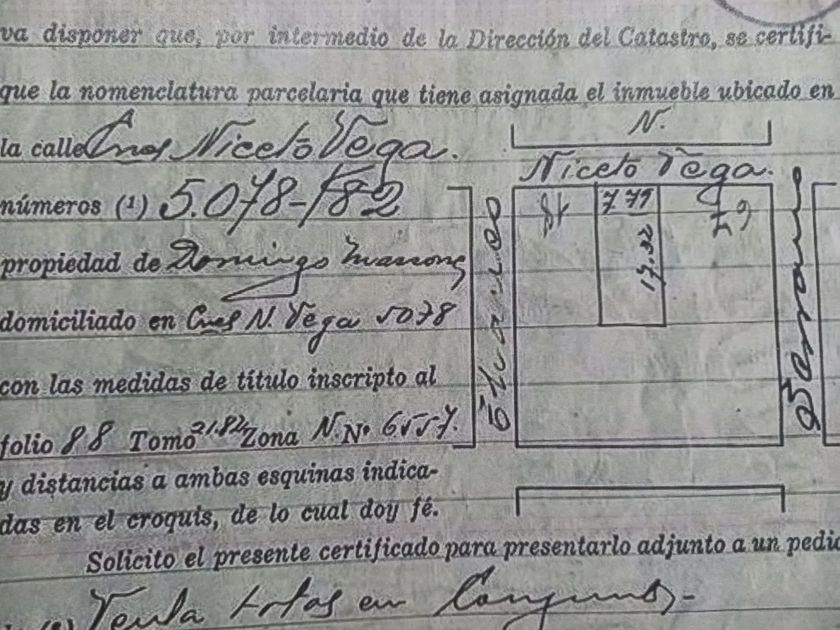 va disponer que, por intermedio de la Dirección del Catastro, se certifi-
que la nomenclatura parcelaria que tiene asignada el inmueble ubicado en
la calle Cnel Niceto Vega.
números (¹) 5.078-/82
propiedad de Domingo
domiciliado en Cnel N. Vega 5078
con las medidas de título inscripto al
folio 88 Tomo 2182 Zona N. Nº 6557.
y distancias a ambas esquinas indica-
das en el croquis, de lo cual doy fé.
Solicito el presente certificado para presentarlo adjunto a un pedid
Venta
N.
Niceto Vega.
7 79